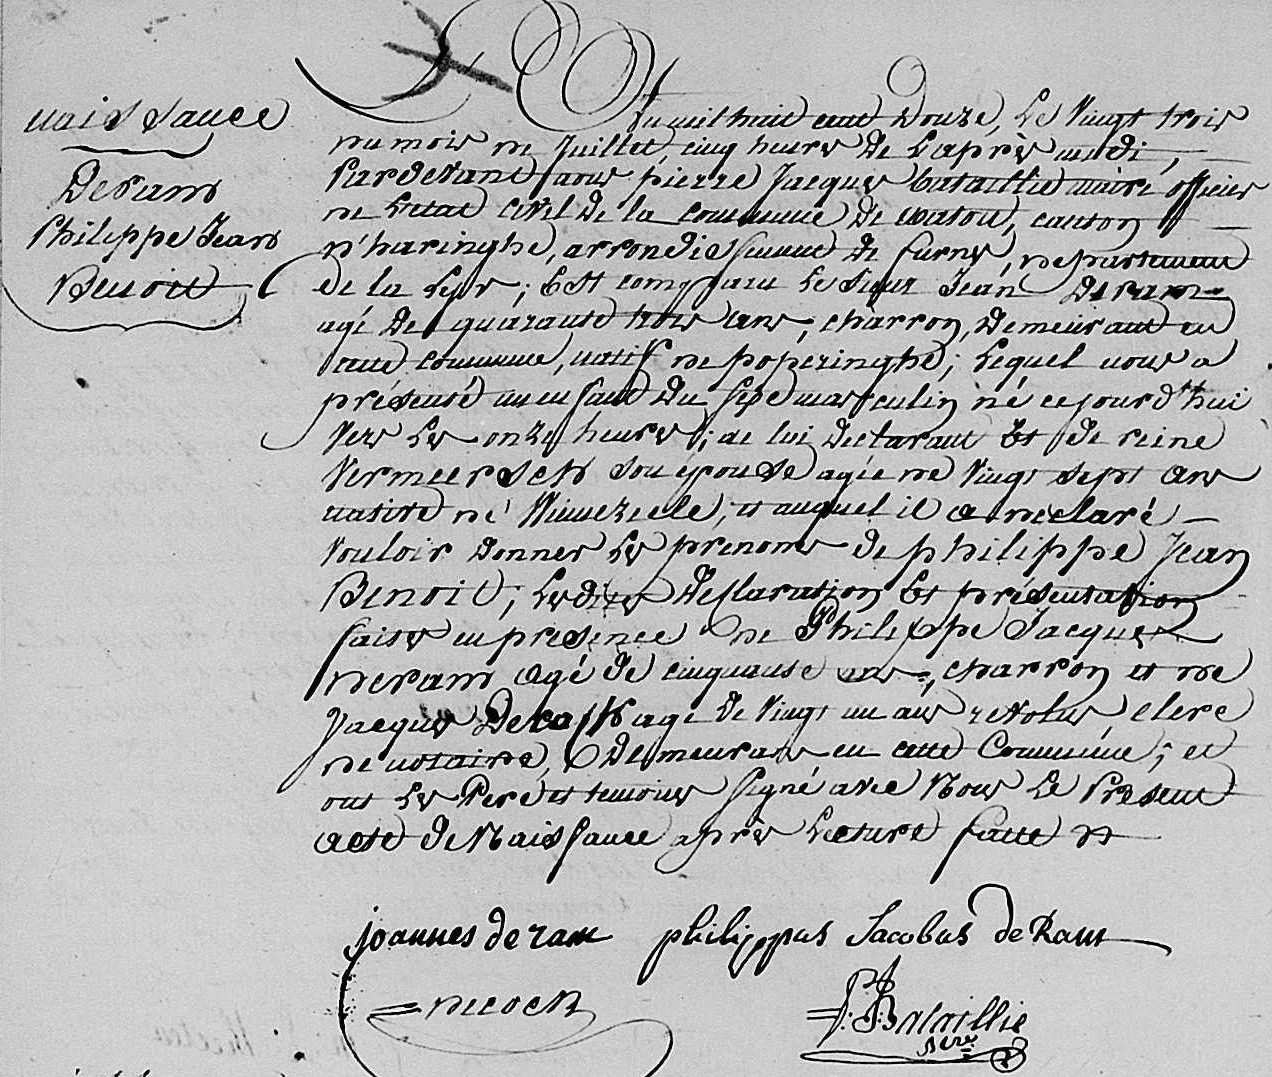 naissance
Deram
Philippe Jean
Benoit
L'an mil huit cent Douze, le vingt trois
du mois de Juillet, cinq heures de l'après midi,
Pardevant nous pierre Jacques Bataillie maire officier
de l'etat civil de la commune de watou, canton
d'haringhe, arrondissement de furnes, departement
de la Lys; Est comparu le sieur Jean Deram
agé de quarante trois ans, charron, demeurant en
cette commune, natif de poperinghe; lequel nous a
présenté un enfant du sexe masculin né cejourd'hui
vers les onze heures; de lui declarant et de reine
vermeersch son épouse agée de vingt sept ans
native de Winnezeele, et auquel il a declaré
vouloir donner les prenoms de philippe Jean
Benoit; lesdites declaration et présentation
faites en présence de Philippe Jacques
deram agé de cinquante ans, charron et de
Jacques Decock agé de vingt un ans revolus clerc
de notaire, Demeurans en cette Commune; et
ont les Pere et temoins signé avec Nous le Présent
acte de Naissance après lecture faite
joannes de ram philippus Jacobus de Ram
decock
P. J. Bataillie